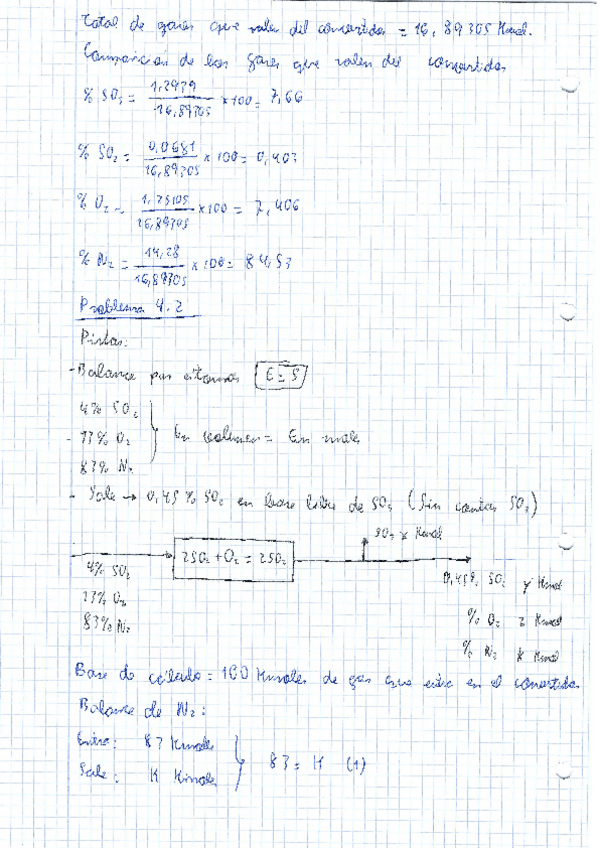 Total de gases que salen del convertidor = 16,89305 Kmol.
Composición de los gases que salen del convertidor
% SO₃ = 1,2939 / 16,89305 x 100 = 7,66
% SO₂ = 0,0681 / 16,89305 x 100 = 0,403
% O₂ = 1,25105 / 16,89305 x 100 = 7,406
% N₂ = 14,28 / 16,89305 x 100 = 84,53
Problema 4.2
Pistas:
- Balance por átomos E = S
4% SO₂
- 13% O₂ } En volumen = En moles
83% N₂
- Sale → 0,45% SO₂ en base libre de SO₃ (Sin contar SO₃)
SO₃ x Kmol
2SO₂ + O₂ = 2SO₃
4% SO₂
13% O₂
83% N₂
0,45% SO₂ y Kmol
% O₂ z Kmol
% N₂ K Kmol
Base de cálculo = 100 Kmoles de gas que entra en el convertidor
Balance de N₂:
Entra: 83 Kmoles
Sale: K Kmoles } 83 = K (1)